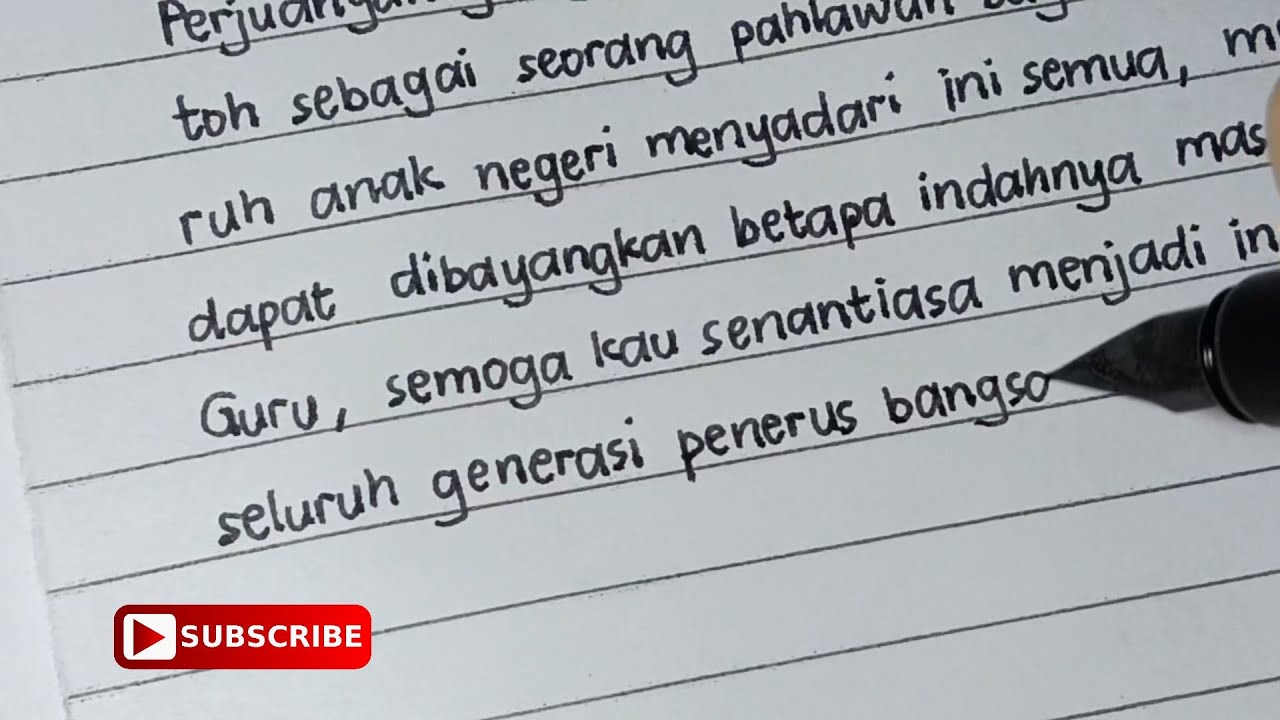 toh sebagai seorang pahlawan
ruh anak negeri menyadari ini semua,
dapat dibayangkan betapa indahnya mas
Guru, semoga kau senantiasa menjadi in
seluruh generasi penerus bangsa
SUBSCRIBE